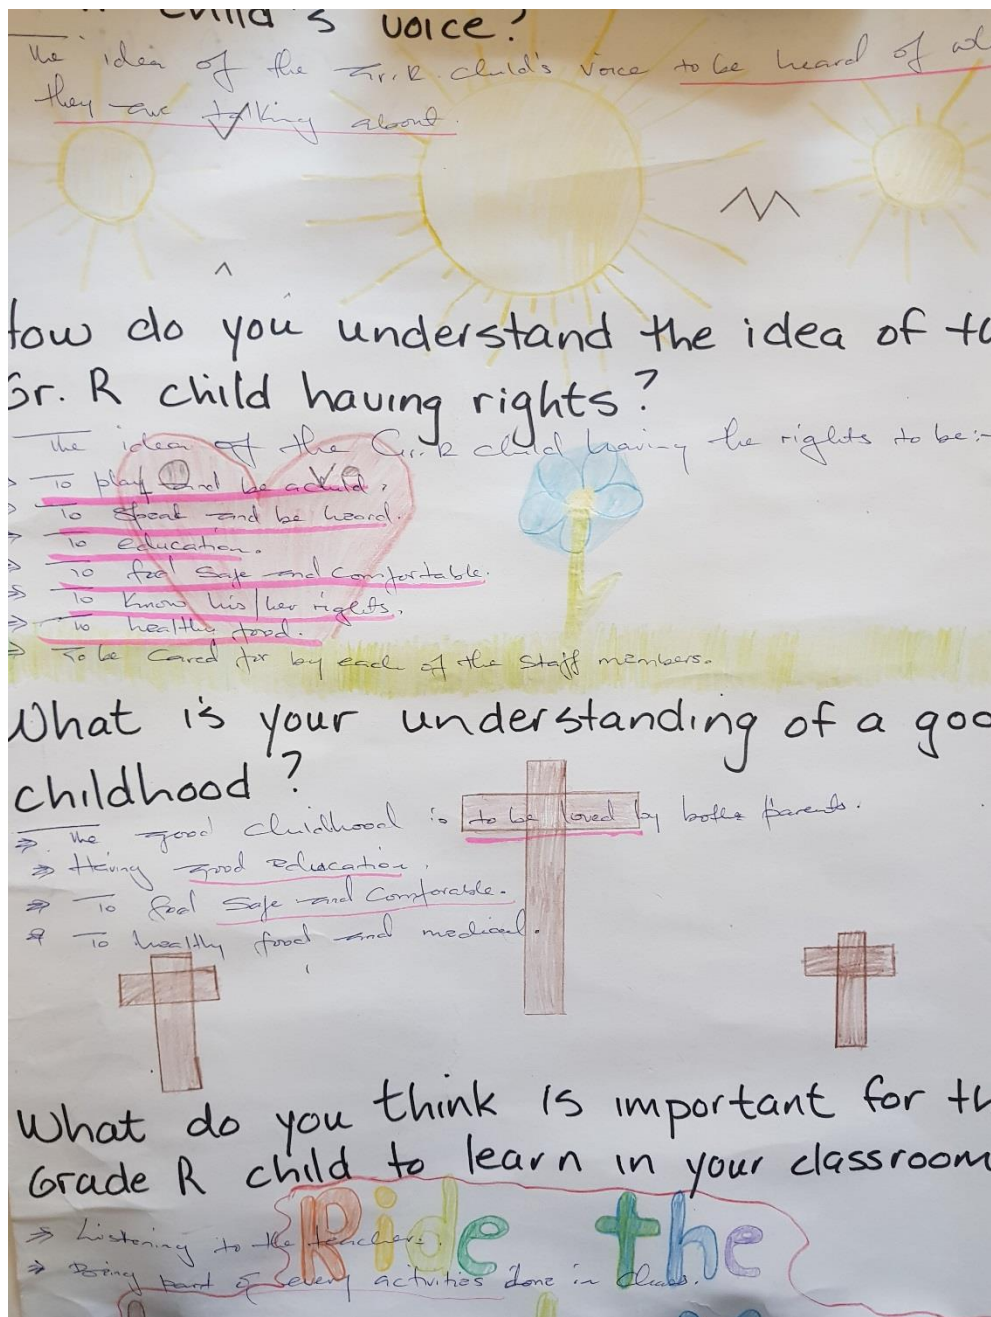 child's voice?
The idea of the Gr.R child's voice to be heard of
they are talking about.
How do you understand the idea of
Gr. R child having rights?
The idea of the Gr.R child having the rights to be:-
To play and be a child.
To speak and be heard.
To education.
To feel safe and comfortable.
To know his/her rights.
To healthy food.
To be cared for by each of the staff members.
What is your understanding of a
childhood?
The good childhood is to be loved by both parents.
Having good education.
To feel safe and comforable.
To healthy food and medical.
What do you think is important for
Grade R child to learn in your classroom
Listening to the teachers.
Being part of every activities done in class.
Ride the